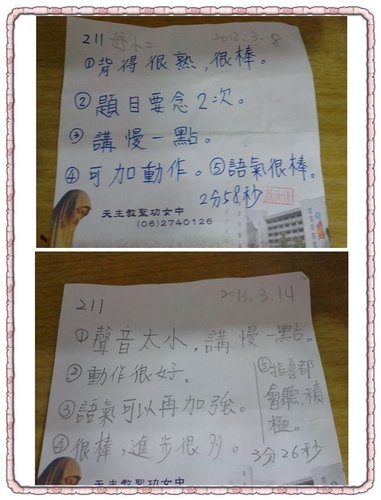 211 2013.3.8
①背得很熟,很棒。
②題目要念2次。
③講慢一點。
④可加動作。⑤語氣很棒。
2分58秒
天主教聖功女中
(06)2740126
211 2013.3.14
①聲音太小,講慢一點。
②動作很好。
③語氣可以再加強。
④很棒,進步很多。
⑤指導都
會聽,積
極。
3分26秒